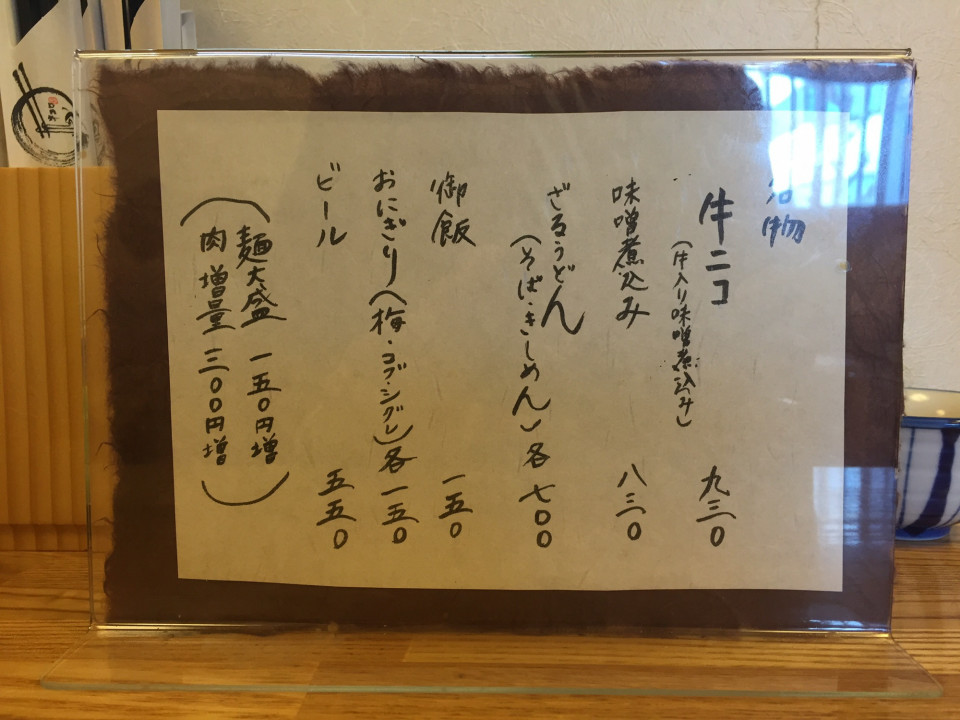 名物
牛ニコ 九三〇
(牛入り味噌煮込み)
味噌煮込み 八三〇
ざるうどん
(そば・きしめん)各 七〇〇
御飯 一五〇
おにぎり(梅・コブ・シグレ)各 一五〇
ビール 五五〇
(麺大盛 一五〇円増
肉増量 三〇〇円増)